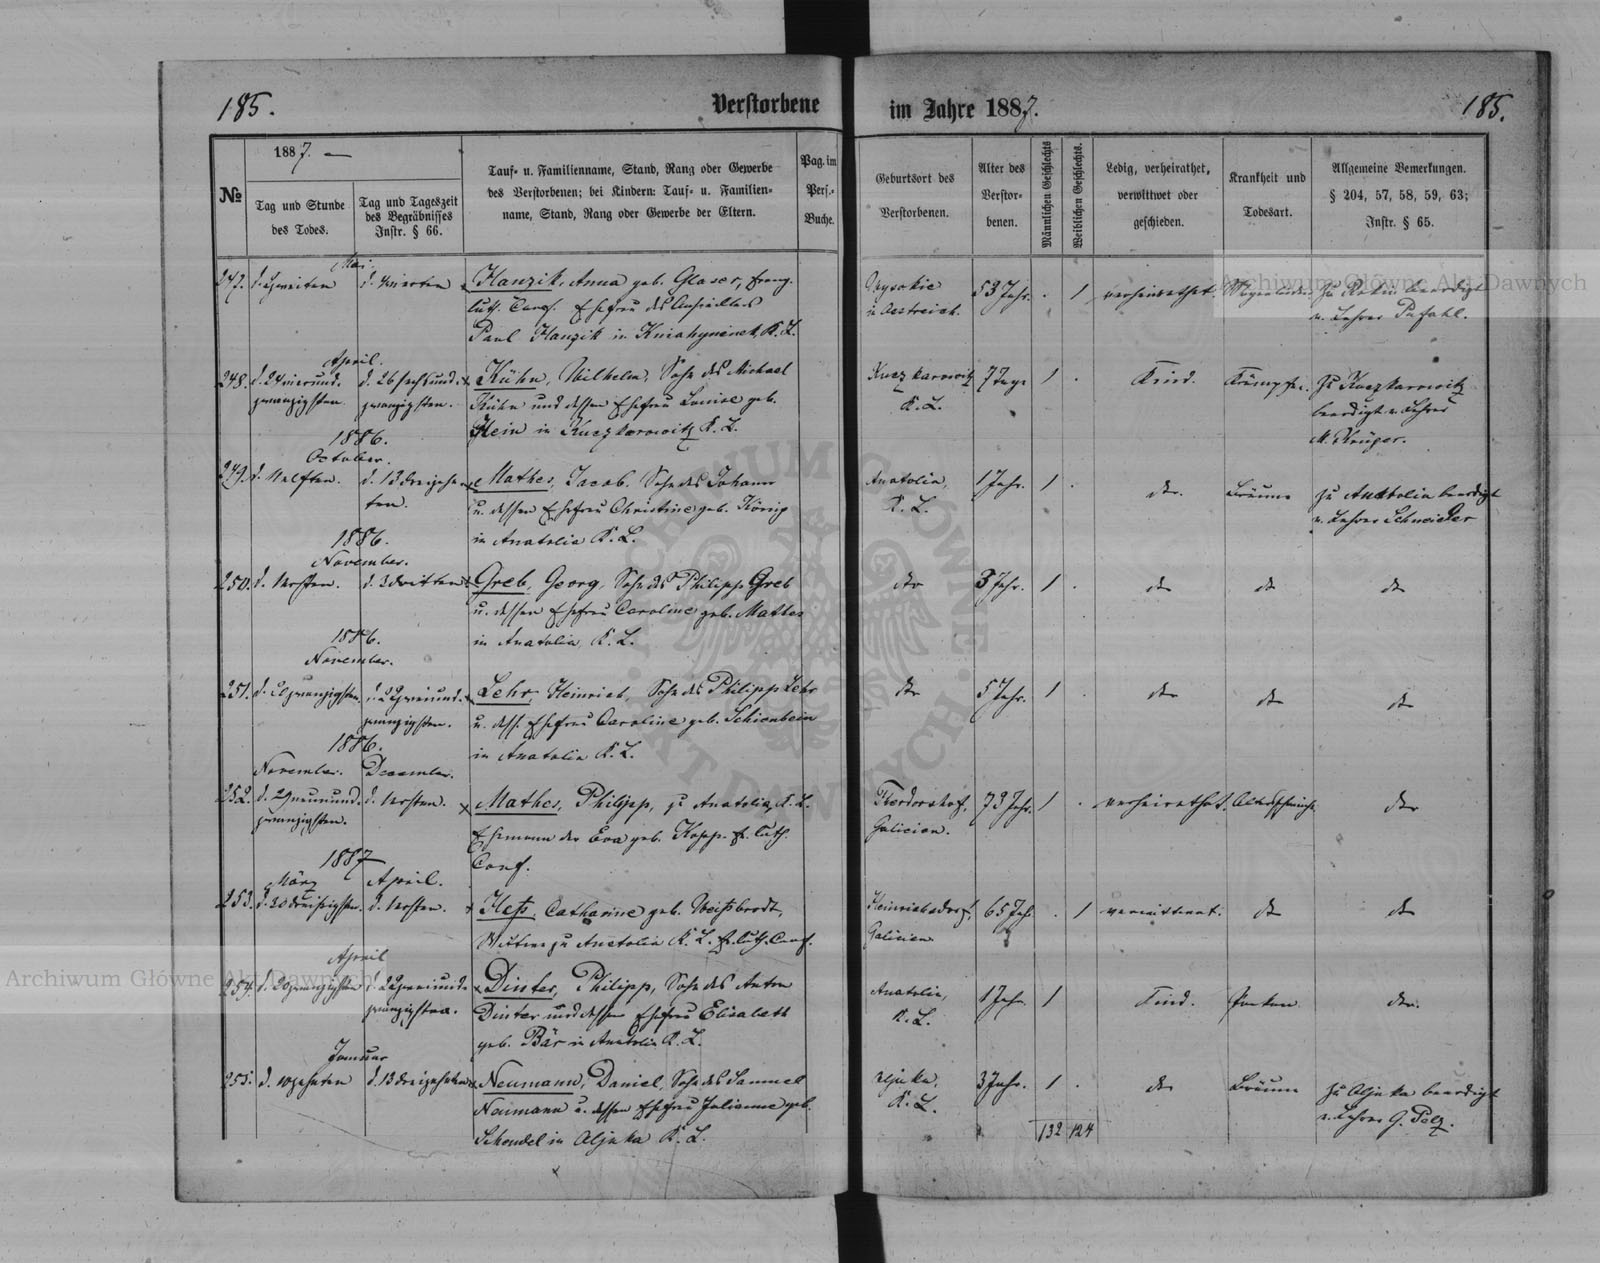 185.
Verstorbene
im Jahre 1887.
185.
№
1887. —
Tag und Stunde
des Todes.
Tag und Tageszeit
des Begräbnisses
Instr. § 66.
Tauf- u. Familienname, Stand, Rang oder Gewerbe
des Verstorbenen; bei Kindern: Tauf- u. Familien-
name, Stand, Rang oder Gewerbe der Eltern.
Pag. im
Pers.-
Buche.
Geburtsort des
Verstorbenen.
Alter des
Verstor-
benen.
Männlichen Geschlechts
Weiblichen Geschlechts.
Ledig, verheirathet,
verwittwet oder
geschieden.
Krankheit und
Todesart.
Allgemeine Bemerkungen.
§ 204, 57, 58, 59, 63;
Instr. § 65.
Mai.
247. d. zweiten d. vierten Hanzik, Anna geb. Glaser, Evang.
luth. Conf. Ehefrau des Ansiedlers
Paul Hanzik in Kniahyninek, K. L.
Wysokie
in Oestreich.
53 Jahr. . 1 verheirathet.
beerdigt
v. Lehrer
April.
248. d. 24 vierund- d. 26 sechsund- x Kühn, Wilhelm, Sohn des Michael
zwanzigsten. zwanzigsten. Kühn und dessen Ehefrau Louise geb.
Hein in Kuczkarowitz K. L.
Kuczkarowitz
K. L.
7 Tage 1 . Kind. Krämpfe. Zu Kuczkarowitz
beerdigt v. Lehrer
M. Krüger.
1886.
October.
249. d. 11 elften. d. 13 dreizehn- x Mathes, Jacob, Sohn des Johann
ten. u. dessen Ehefrau Christine geb. König
in Anatolia K. L.
Anatolia,
K. L.
1 Jahr. 1 . dto. Bräune zu Anatolia beerdigt
v. Lehrer Schneider
1886.
November.
250. d. 1 ersten. d. 3 dritten x Greb, Georg, Sohn des Philipp Greb
u. dessen Ehefrau Caroline geb. Mathes
in Anatolia, K. L.
dto 3 Jahr. 1 . dto dto dto
1886.
November.
251. d. 20 zwanzigsten d. 22 zweiund- x Lehr, Heinrich, Sohn des Philipp Lehr
zwanzigsten. u. dess. Ehefrau Caroline geb. Schienbein
in Anatolia K. L.
dto 5 Jahr. 1 . dto dto dto
1886.
November. December.
252. d. 29 neunund- d. 1 ersten. x Mathes, Philipp, zu Anatolia, K. L.
zwanzigsten. Ehemann der Eva geb. Kopp. Ev. luth.
Conf.
Galicien.
73 Jahr. 1 . verheirathet. Altersschwäche dto
1887
März April.
253. d. 30 dreißigsten. d. 1 ersten. x Heß, Catharine geb. Weißbrodt,
Wittwe zu Anatolia K. L. Ev. luth. Conf.
Heinrichsdorf,
Galicien
65 Jahr . 1 verwittwet. dto dto
April
254. d. 20 zwanzigsten d. 22 zweiund- x Dinter, Philipp, Sohn des Anton
zwanzigsten. Dinter und dessen Ehefrau Elisabeth
geb. Bär in Anatolia K. L.
Anatolia,
K. L.
1 Jahr. 1 Kind. Pocken. dto.
Januar
255. d. 10 zehnten d. 13 dreizehnten x Neumann, Daniel, Sohn des Samuel
Neumann u. dessen Ehefrau Julianne geb.
Schendel in Aljuka K. L.
Aljuka,
K. L.
3 Jahr. 1 . dto Bräune Zu Aljuka beerdigt
v. Lehrer G. Pelz.
132 124
Archiwum Główne Akt Dawnych
Archiwum Główne Akt Dawnych
ARCHIWUM GŁÓWNE AKT DAWNYCH